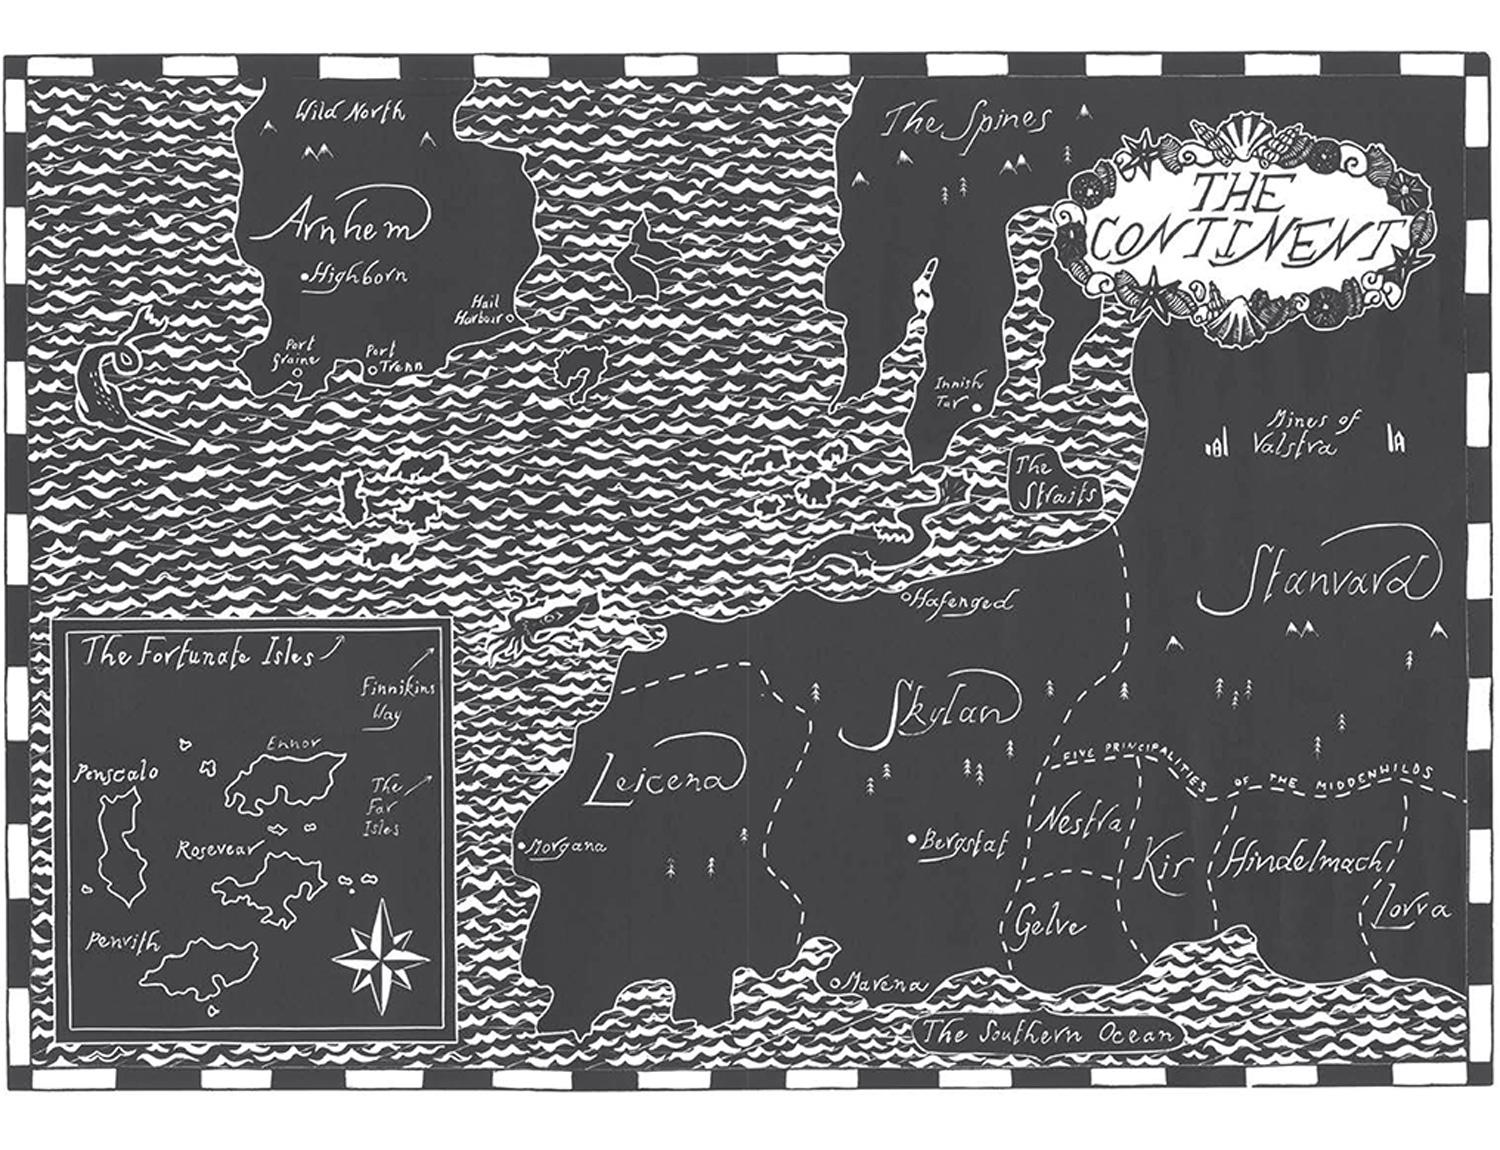 Wild North
Arnhem
Highborn
Hail
Harbour
Port
Graine
Port
Trenn
The Spines
THE
CONTINENT
Innish
Tar
The
Straits
Mines of
Valstra
Stanvard
Hafenged
Skylan
Leicena
Morgana
Bergstat
FIVE PRINCIPALITIES OF THE MIDDENWILDS
Nestra
Kir
Hindelmach
Lorra
Gelve
Mavena
The Southern Ocean
The Fortunate Isles
Finnikins
Way
Ennor
Penscalo
The
Far
Isles
Rosevear
Penrith